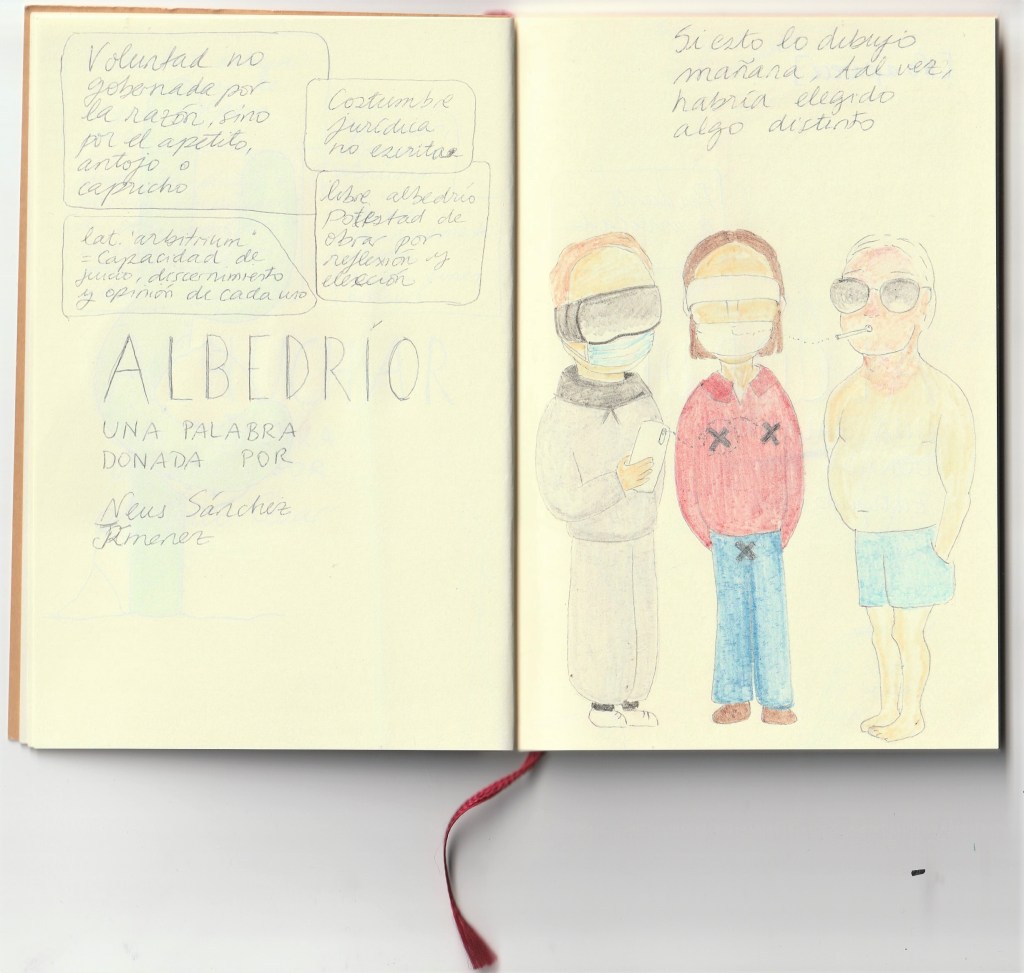 Voluntad no
gobernada por
la razón, sino
por el apetito,
antojo o
capricho
Costumbre
jurídica
no escrita
libre albedrío
Potestad de
obrar por
reflexión y
elección
lat. 'arbitrium'
= capacidad de
juicio, discernimiento
y opinión de cada uno
ALBEDRÍO
UNA PALABRA
DONADA POR
Neus Sánchez
Jimenez
Si esto lo dibujo
mañana, tal vez,
habría elegido
algo distinto